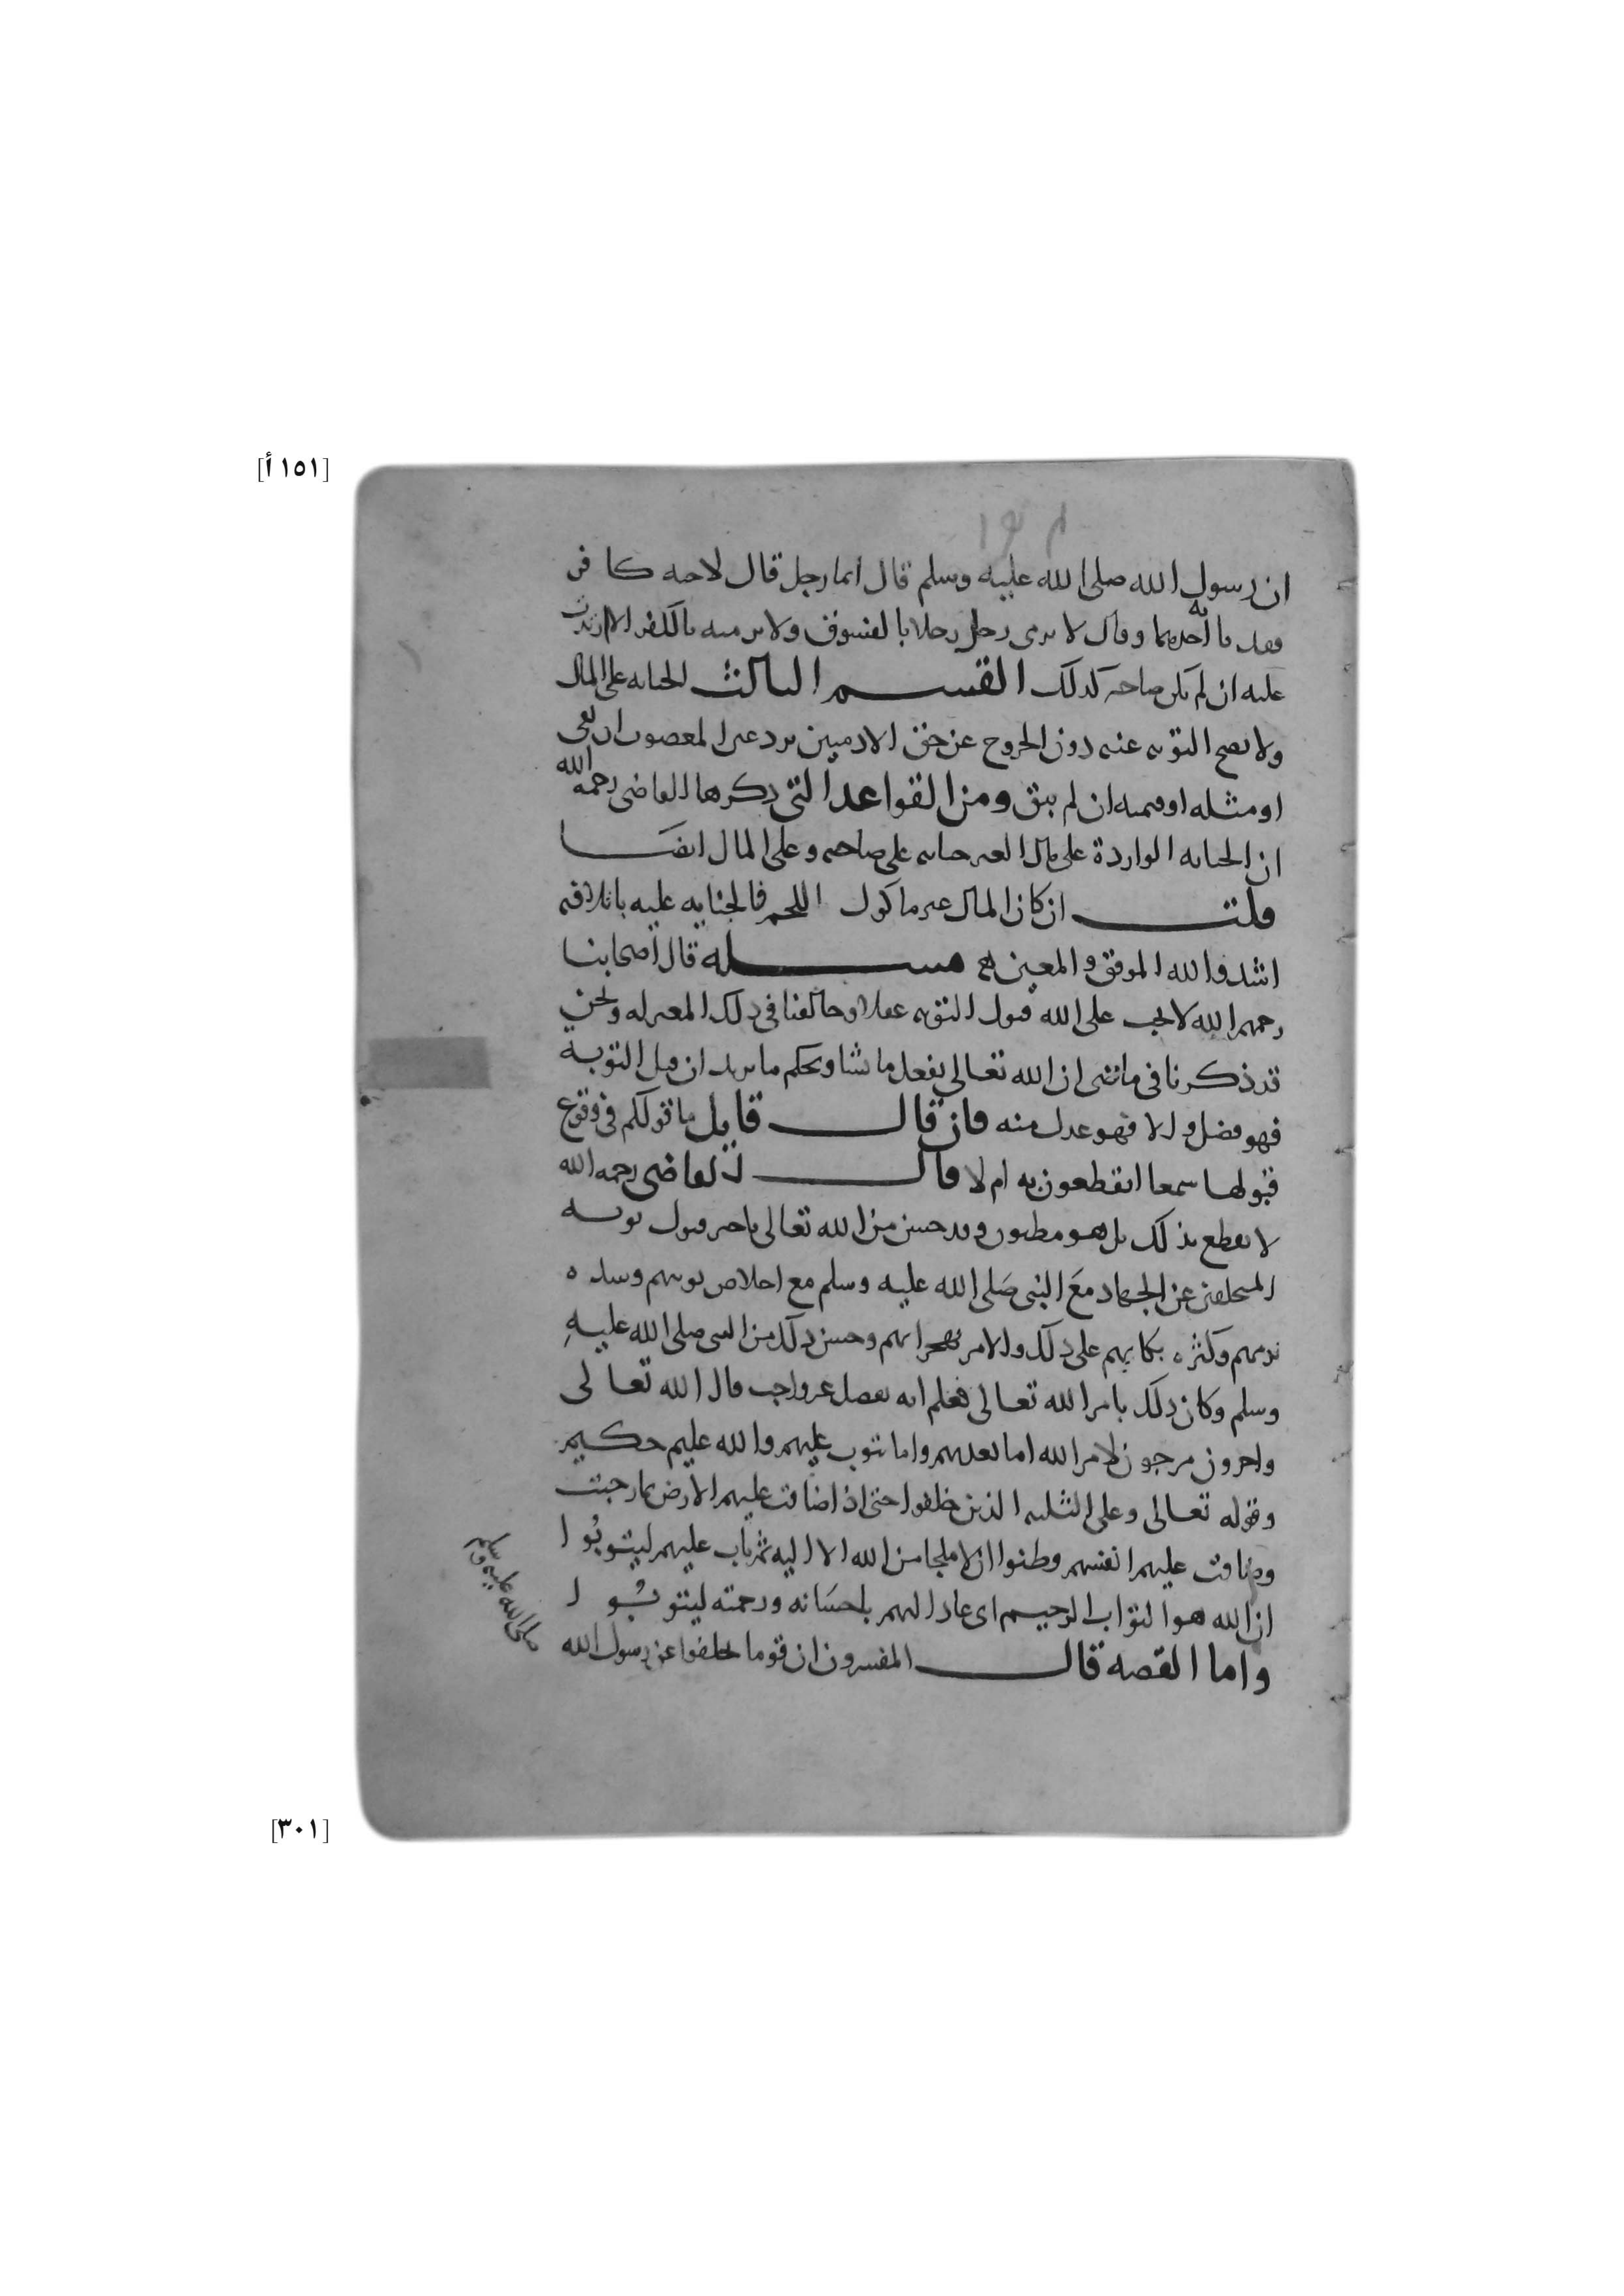 [١٥١ أ]
ان رسول الله صلى الله عليه وسلم قال ايما رجل قال لاخيه كافر
فقد با به احدهما وقال لا يرمى رجل رجلا بالفسوق ولا يرميه بالكفر الا ارتدت
عليه ان لم يكن صاحبه كذلك القسم الثالث الجنايه على المال
ولا تصح التوبه عنه دون الخروج عن حق الادميين برد عين المغصوب ان بقى
او مثله او قيمته ان لم يبق ومن القواعد التي ذكرها القاضي رحمه الله
ان الجنايه الواردة على مال الغير جنايه على صاحبه وعلى المال ايضا
قلت ان كان المال غير ماكول اللحم فالجنايه عليه باتلافه
اشد والله الموفق والمعين مسله قال اصحابنا
رحمهم الله لا يجب على الله قبول التوبه عقلا وخالفنا في ذلك المعتزله ونحن
قد ذكرنا في ما مضى ان الله تعالى يفعل ما يشا ويحكم ما يريد ان قبل التوبة
فهو فضل والا فهو عدل منه فان قال قايل ما قولكم في وقوع
قبولها سمعا اتقطعون به ام لا قال القاضي رحمه الله
لا نقطع بذلك بل هو مظنون وقد حسن من الله تعالى تاخير قبول توبه
المتخلفين عن الجهاد مع النبي صلى الله عليه وسلم مع اخلاص توبتهم وشده
ندمهم وكثره بكايهم على ذلك والامر بهجرانهم وحسن ذلك من النبي صلى الله عليه
وسلم وكان ذلك بامر الله تعالى فعلم انه تفضل غير واجب قال الله تعالى
واخرون مرجون لامر الله اما يعذبهم واما يتوب عليهم والله عليم حكيم
وقوله تعالى وعلى الثلثه الذين خلفوا حتى اذا ضاقت عليهم الارض بما رحبت
وضاقت عليهم انفسهم وظنوا ان لا ملجا من الله الا اليه ثم تاب عليهم ليتوبوا
ان الله هو التواب الرحيم اى عاد اليهم باحسانه ورحمته ليتوبوا
واما القصه قال المفسرون ان قوما تخلفوا عن رسول الله
صلى الله عليه وسلم
[٣٠١]